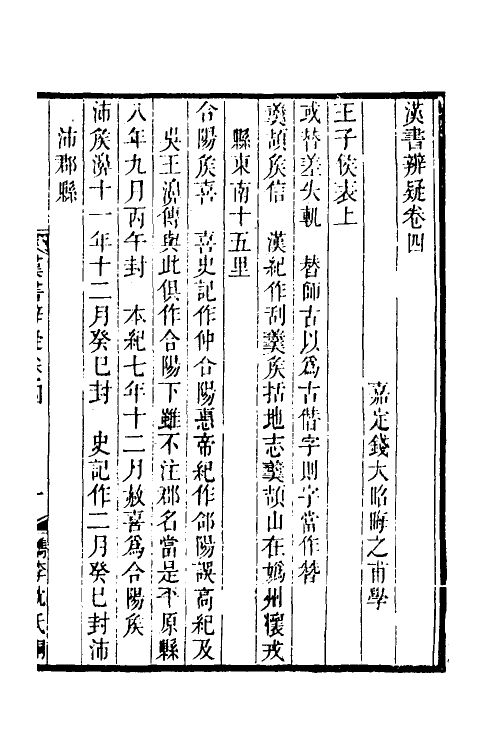 漢書辨疑卷四
嘉定錢大昭晦之甫學
王子侯表上
或替差失軌　替師古以爲古僭字則字當作朁
羹頡矦信　漢紀作刮羹矦括地志羹頡山在嬀州懷戎
縣東南十五里
合陽矦喜　喜史記作仲合陽惠帝紀作郃陽誤高紀及
吳王濞傳與此俱作合陽下雖不注郡名當是平原縣
八年九月丙午封　本紀七年十二月赦喜爲合陽矦
沛矦濞十一年十二月癸巳封　史記作二月癸巳封沛
沛郡縣
漢書辨疑卷四
一